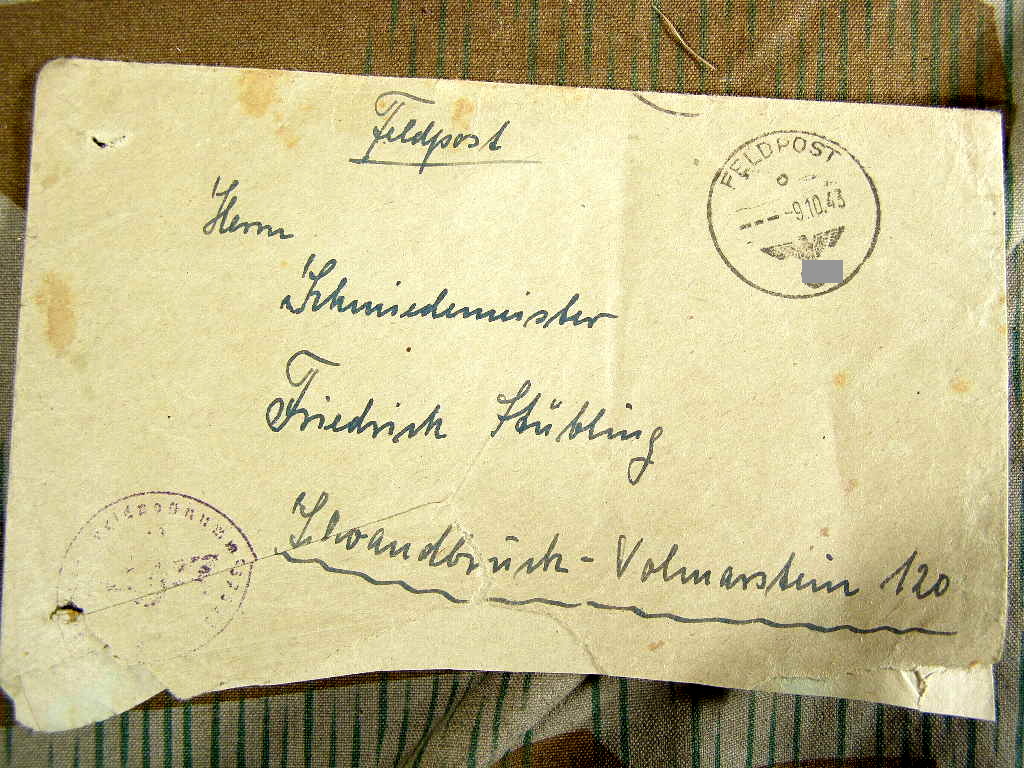 Feldpost
FELDPOST
-9.10.43
Herrn
Schmiedemeister
Friedrich Stübling
Schwandbruch-Volmarstein 120